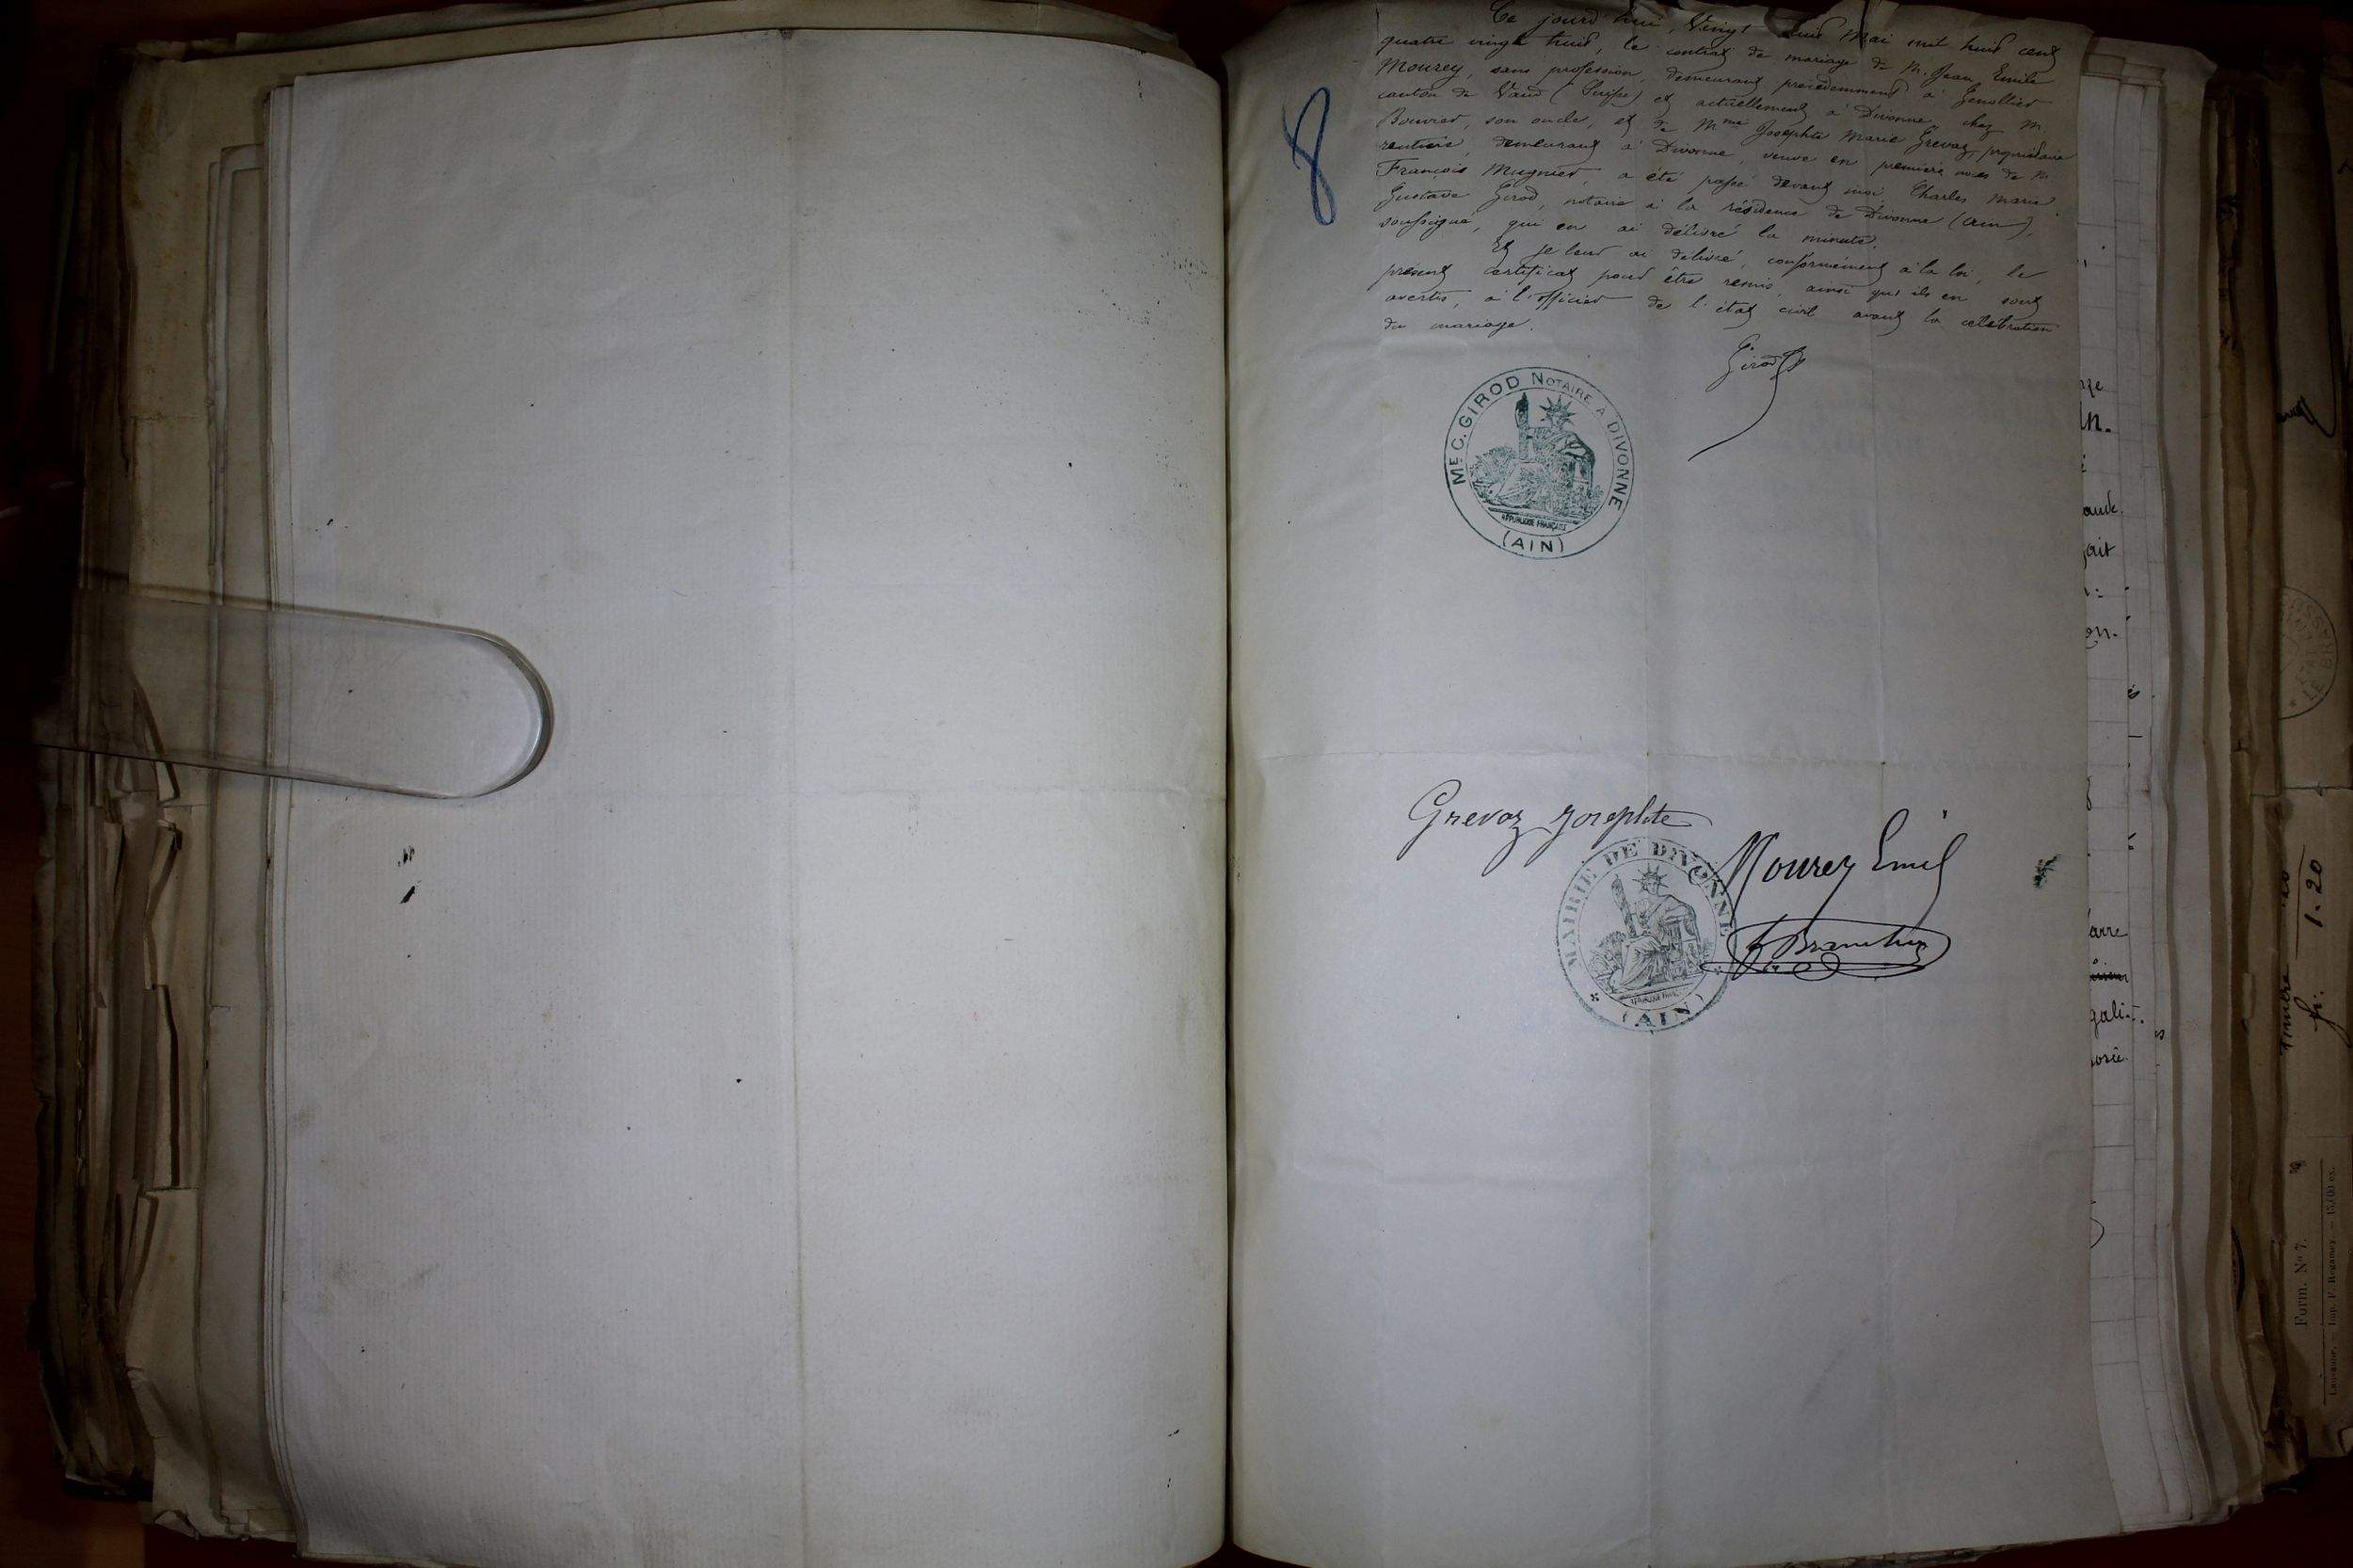 8
Ce jourd'hui, Vingt huit Mai mil huit cent
quatre vingt huit, le contrat de mariage de M. Jean Emile
Mourey, sans profession, demeurant précédemment à Genollier
canton de Vaud (Suisse) et actuellement à Divonne, chez M.
Bouvier, son oncle, et de Mme Josephte Marie Grevaz, propriétaire
rentière, demeurant à Divonne, veuve en premières noces de M.
François Mugnier, a été passé devant moi Charles Marie
Gustave Girod, notaire à la résidence de Divonne (Ain),
soussigné, qui en ai délivré la minute.
Et je leur ai délivré, conformément à la loi, le
présent certificat pour être remis, ainsi qu'ils en sont
avertis, à l'officier de l'état civil avant la célébration
du mariage.
Girod
Me C. GIROD NOTAIRE A DIVONNE
RÉPUBLIQUE FRANÇAISE
(AIN)
Grevaz Josephte
Mourey Emil
MAIRIE DE DIVONNE
(AIN)
1.20
Form. No 7.